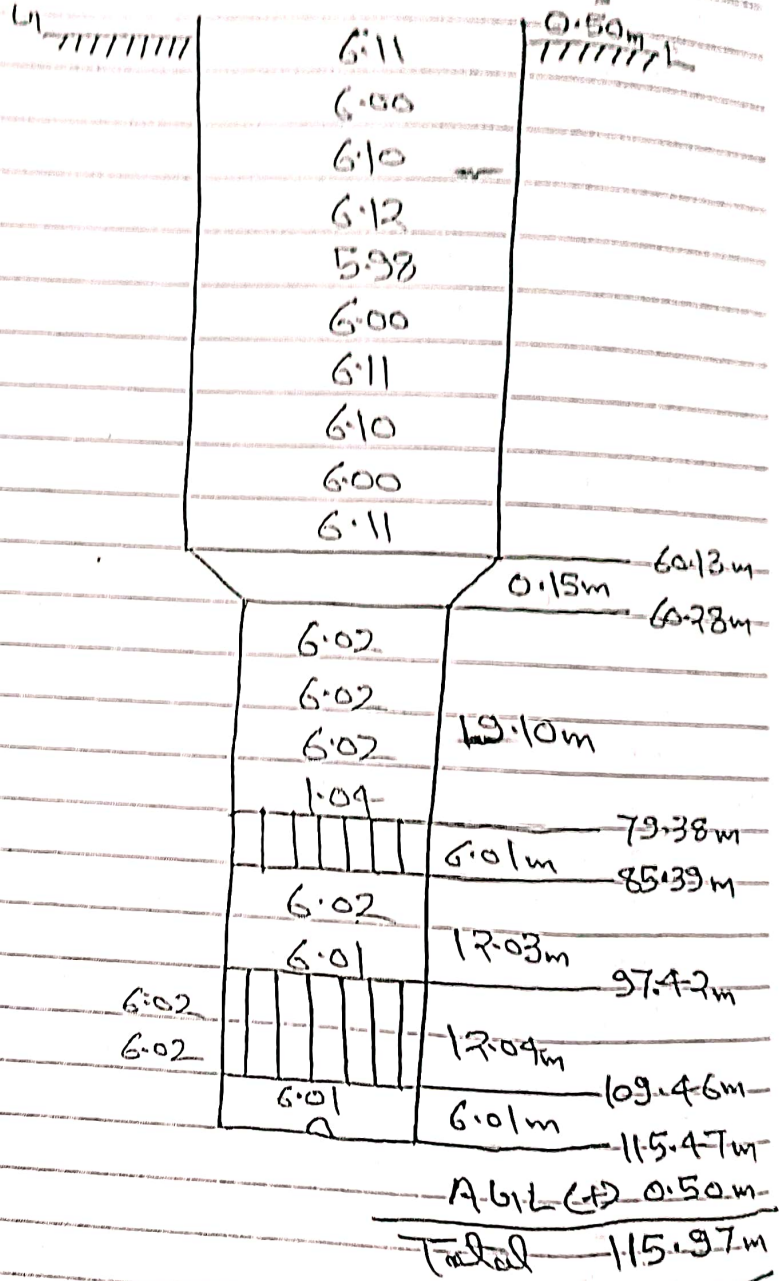 G
0.50m
L
6.11
6.00
6.10
6.12
5.98
6.00
6.11
6.10
6.00
6.11
60.13m
0.15m
60.28m
6.02
6.02
19.10m
6.02
1.04
79.38m
6.01m
85.39m
6.02
12.03m
6.01
97.42m
6.02
6.02
12.04m
109.46m
6.01
6.01m
115.47m
A.G.L (+) 0.50m
Total 115.97m